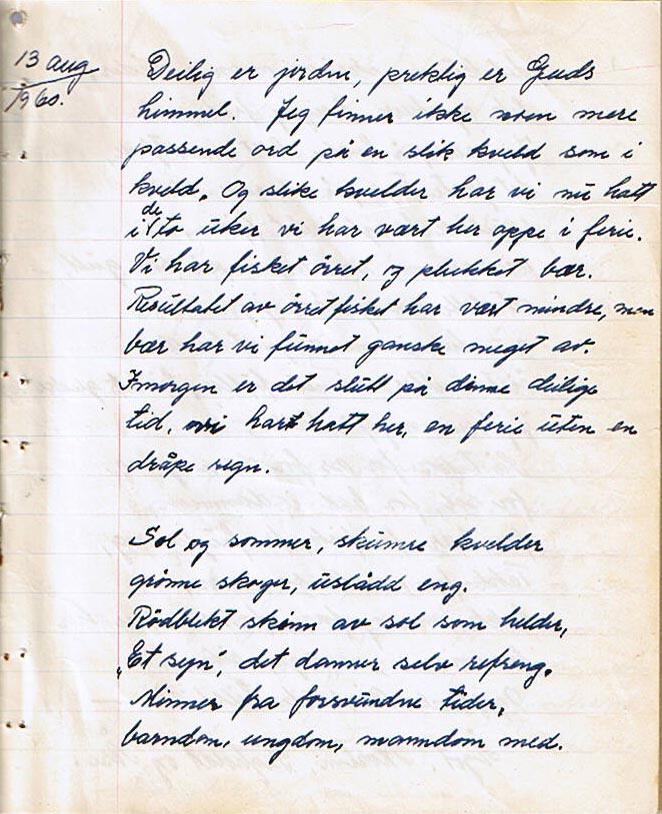 13 aug
1960.
Deilig er jorden, prektig er Guds
himmel. Jeg finner ikke noen mere
passende ord på en slik kveld som i
kveld. Og slike kvelder har vi nu hatt
i de to uker vi har vært her oppe i ferie.
Vi har fisket örret, og plukket bær.
Resultatet av örretfisket har vært mindre, men
bær har vi funnet ganske meget av.
Imorgen er det slutt på denne deilige
tid, vi har hatt her, en ferie uten en
dråpe regn.
Sol og sommer, skumre kvelder
grönne skoger, uslådd eng.
Rödblekt skinn av sol som helder,
"Et syn", det danner selv refreng.
Minner fra forsvundne tider,
barndom, ungdom, manndom med.